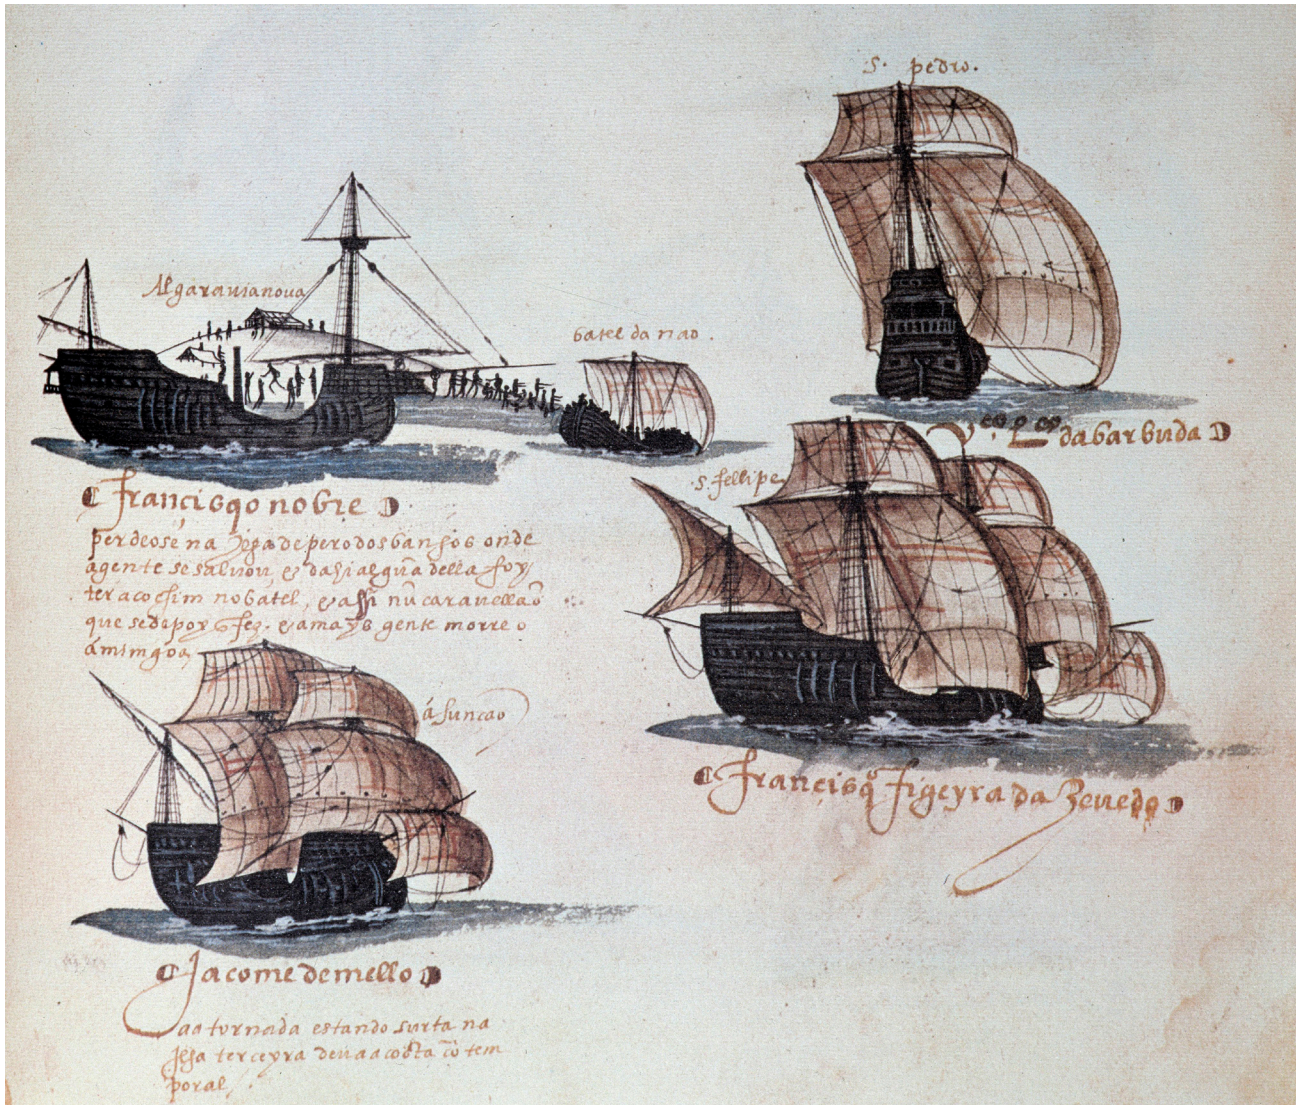 s. pedro.
Algaravia nova
batel da nao.
V.co g.co da barbuda
s. fellipe
francisqo nobre
perdeose na de pero dos banhos onde
a gente se salvou, & dahi algũa della foy
ter a cochim no batel, & assi nũ caravellaõ
que se depoys fez. & a mays gente morreo
á mimgoa,
á sunçao
francisqo figeyra da zevedo
Jacome de mello
aa tornada estando surta na
Ilha terceyra deu aa costa cõ tem
poral,